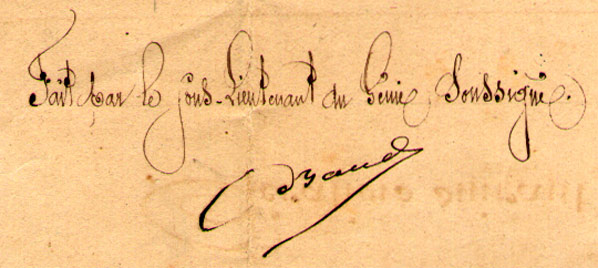 Fait par le Sous-Lieutenant du Génie Soussigné.